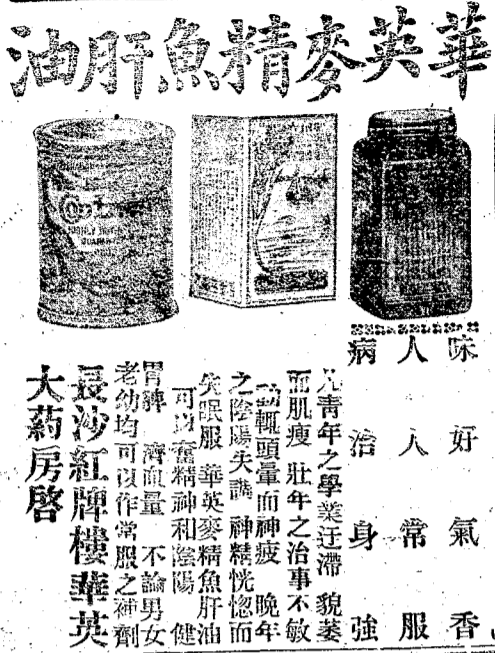 華英麥精魚肝油
味好氣香
人人常服
病治身強
凡青年之學業迂滯 貌萎
而肌瘦 壯年之治事不敏
動輒頭暈而神疲 晚年
之陰陽失調 神精恍惚而
失眠服 華英麥精魚肝油
可以奮精神和陰陽 健
胃脾 濟血量 不論男女
老幼均可以作常服之補劑
長沙紅牌樓華英
大藥房啓